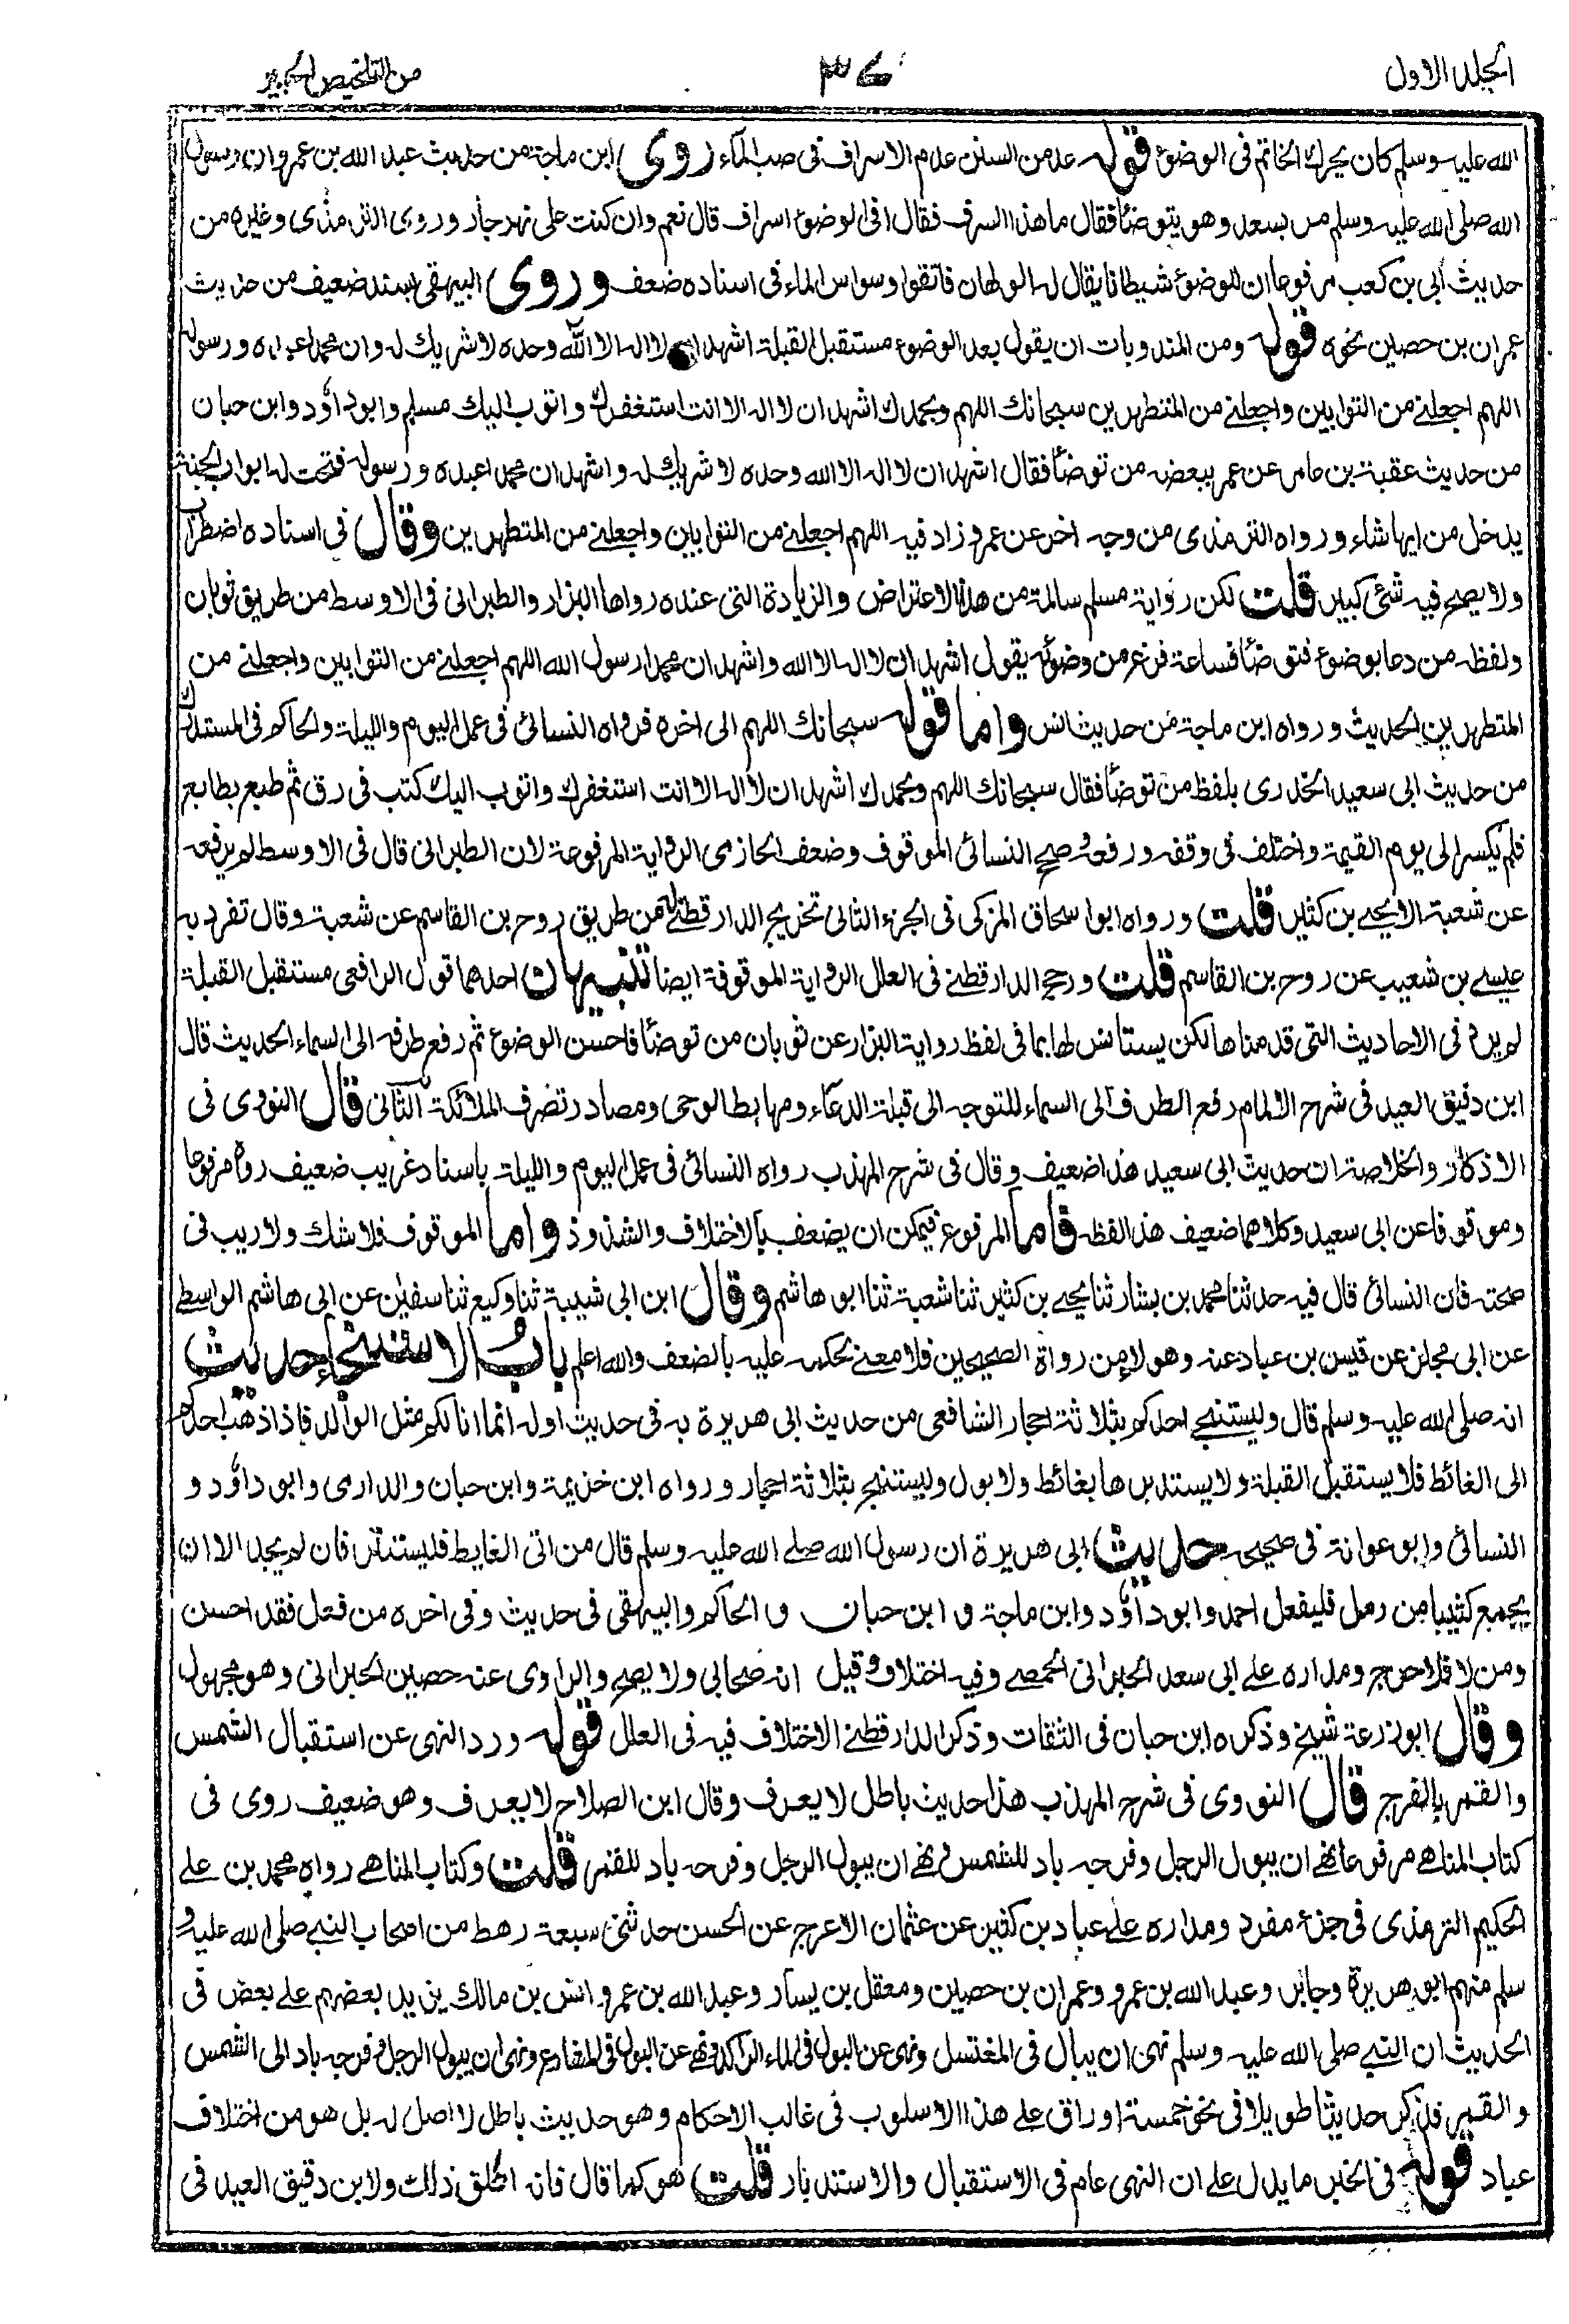 الجلد الاول
٣٧
من التلخيص الحبير
الله عليه وسلم كان يحرك الخاتم فى الوضوء قوله عد من السنن عدم الاسراف فى صب الماء روى ابن ماجة من حديث عبد الله بن عمرو ان رسول
الله صلى الله عليه وسلم مر بسعد وهو يتوضأ فقال ما هذا السرف فقال افى الوضوء اسراف قال نعم وان كنت على نهر جار وروى الترمذى وغيره من
حديث ابى بن كعب مرفوعا ان للوضوء شيطانا يقال له الولهان فاتقوا وسواس الماء فى اسناده ضعف وروى البيهقى بسند ضعيف من حديث
عمران بن حصين نحوه قوله ومن المندوبات ان يقول بعد الوضوء مستقبل القبلة اشهد ان لا اله الا الله وحده لا شريك له وان محمدا عبده ورسوله
اللهم اجعلنے من التوابين واجعلنے من المتطهرين سبحانك اللهم وبحمدك اشهد ان لا اله الا انت استغفرك واتوب اليك مسلم وابو داؤد وابن حبان
من حديث عقبة بن عامر عن عمر ببعضه من توضأ فقال اشهد ان لا اله الا الله وحده لا شريك له واشهد ان محمدا عبده ورسوله فتحت له ابواب الجنة
يدخل من ايها شاء ورواه الترمذى من وجه اخر عن عمر وزاد فيه اللهم اجعلنے من التوابين واجعلنے من المتطهرين وقال فى اسناده اضطراب
ولا يصح فيه شئ كبير قلت لكن رواية مسلم سالمة من هذا الاعتراض والزيادة التى عنده رواها البزار والطبرانى فى الاوسط من طريق ثوبان
ولفظه من دعا بوضوء فتوضأ فساعة فرغ من وضوئه يقول اشهد ان لا اله الا الله واشهد ان محمدا رسول الله اللهم اجعلنے من التوابين واجعلنے من
المتطهرين الحديث ورواه ابن ماجة من حديث انس واما قوله سبحانك اللهم الى اخره فرواه النسائى فى عمل اليوم والليلة والحاكم فى المستدرك
من حديث ابى سعيد الخدرى بلفظ من توضأ فقال سبحانك اللهم وبحمدك اشهد ان لا اله الا انت استغفرك واتوب اليك كتب فى رق ثم طبع بطابع
فلم يكسر الى يوم القيمة واختلف فى وقفه ورفعه وصحح النسائى الموقوف وضعف الحازمى الرواية المرفوعة لان الطبرانى قال فى الاوسط لم يرفعه
عن شعبة الا يحيے بن كثير قلت ورواه ابو اسحاق المزكى فى الجزء الثانى تخريج الدارقطنے له من طريق روح بن القاسم عن شعبة وقال تفرد به
عيسے بن شعيب عن روح بن القاسم قلت ورجح الدارقطنے فى العلل الرواية الموقوفة ايضا تنبيهان احدهما قول الرافعى مستقبل القبلة
لم يرد فى الاحاديث التى قدمناها لكن يستانس لها بما فى لفظ رواية البزار عن ثوبان من توضأ فاحسن الوضوء ثم رفع طرفه الى السماء الحديث قال
ابن دقيق العيد فى شرح الالمام رفع الطرف الى السماء للتوجه الى قبلة الدعاء ومهابط الوحى ومصادر تصرف الملائكة الثانى قال النووى فى
الاذكار والخلاصة ان حديث ابى سعيد هذا ضعيف وقال فى شرح المهذب رواه النسائى فى عمل اليوم والليلة باسناد غريب ضعيف رواه مرفوعا
وموقوفا عن ابى سعيد وكلاهما ضعيف هذا لفظه فاما المرفوع فيمكن ان يضعف بالاختلاف والشذوذ واما الموقوف فلا شك ولا ريب فى
صحته فان النسائى قال فيه حدثنا محمد بن بشار ثنا يحيے بن كثير ثنا شعبة ثنا ابو هاشم وقال ابن ابى شيبة ثنا وكيع ثنا سفين عن ابى هاشم الواسطے
عن ابى مجلز عن قيس بن عباد عنه وهولاء من رواة الصحيحين فلا معنے لحكمه عليه بالضعف والله اعلم باب الاستنجاء حديث
انه صلى الله عليه وسلم قال وليستنجے احدكم بثلاثة احجار الشافعى من حديث ابى هريرة به فى حديث اوله انما انا لكم مثل الوالد فاذا ذهب احدكم
الى الغائط فلا يستقبل القبلة ولا يستدبرها بغائط ولا بول وليستنج بثلاثة احجار ورواه ابن خزيمة وابن حبان والدارمى وابو داؤد و
النسائى وابو عوانة فى صحيحه حديث ابى هريرة ان رسول الله صلے الله عليه وسلم قال من اتى الغايط فليستتر فان لم يجد الا ان
يجمع كثيبا من رمل فليفعل احمد وابو داؤد وابن ماجة و ابن حبان و الحاكم والبيهقى فى حديث وفى اخره من فعل فقد احسن
ومن لا فلا حرج ومداره علے ابى سعد الحبرانى الحمصے وفيه اختلاف وقيل انه صحابى ولا يصح والراوى عنه حصين الحبرانى وهو مجهول
وقال ابو زرعة شيخ وذكره ابن حبان فى الثقات وذكر الدارقطنے الاختلاف فيه فى العلل قوله ورد النهى عن استقبال الشمس
والقمر بالفرج قال النووى فى شرح المهذب هذا حديث باطل لا يعرف وقال ابن الصلاح لا يعرف وهو ضعيف روى فى
كتاب المناهے مرفوعا نهے ان يبول الرجل وفرجه باد للشمس ونهے ان يبول الرجل وفرجه باد للقمر قلت وكتاب المناهے رواه محمد بن علے
الحكيم الترمذى فى جزء مفرد ومداره علے عباد بن كثير عن عثمان الاعرج عن الحسن حدثنى سبعة رهط من اصحاب النبے صلى الله عليه و
سلم منهم ابو هريرة وجابر وعبد الله بن عمرو وعمران بن حصين ومعقل بن يسار وعبد الله بن عمر وانس بن مالك يزيد بعضهم علے بعض فى
الحديث ان النبے صلى الله عليه وسلم نهى ان يبال فى المغتسل ونهى عن البول فى الماء الراكد ونهے عن البول فى المشارع ونهى ان يبول الرجل وفرجه باد الى الشمس
والقمر فذكر حديثا طويلا فى نحو خمسة اوراق علے هذا الاسلوب فى غالب الاحكام وهو حديث باطل لا اصل له بل هو من اختلاق
عباد قوله فى الخبر ما يدل علے ان النهى عام فى الاستقبال والاستدبار قلت هو كما قال فانه اطلق ذلك ولابن دقيق العيد فى